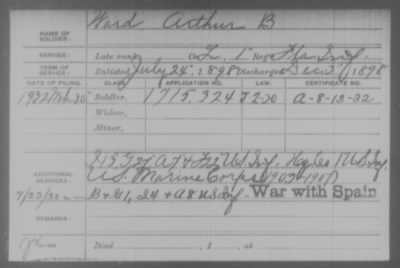 NAME OF SOLDIER: Ward, Arthur B
SERVICE: Late rank, Co. L, 1" Reg't Fla. Inf.
TERM OF SERVICE: Enlisted July 24", 1898 Discharged Dec 3", 1898
DATE OF FILING. CLASS. APPLICATION NO. LAW. CERTIFICATE NO.
1932 Mch. 30" Soldier, 1715,324 A-8-13-32
Widow,
Minor,
ADDITIONAL SERVICES: U.S. Inf.
U.S. Marine Corps
7/23/32 U.S. Inf. War with Spain
REMARKS:
Died , 1 , at